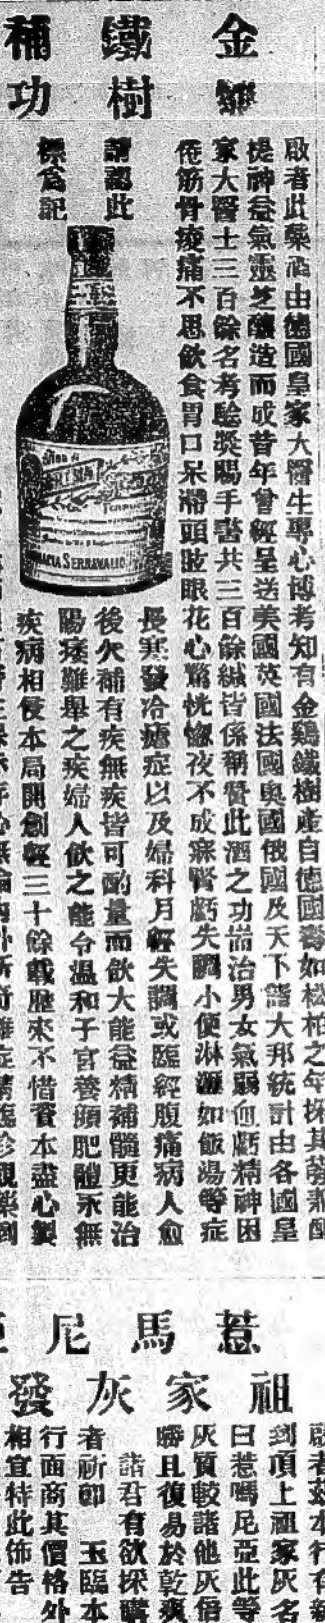 金鷄
鐵樹
補功
啟者此藥酒由德國皇家大醫生專心博考知有金鷄鐵樹產自德國壽如松柏之年採其葯
提神益氣靈芝釀造而成昔年曾經呈送美國英國法國奧國俄國及天下諸大邦統計由各國皇
家大醫士三百餘名考驗獎賜手書共三百餘緘皆係稱贊此酒之功耑治男女氣弱血虧精神困
倦筋骨痠痛不思飲食胃口呆滯頭眩眼花心驚恍惚夜不成寐腎虧失調小便淋瀝如飯湯等症
請認此
標為記
SERRAVALLO
長寒發冷瘧症以及婦科月經失調或臨經腹痛病人愈
後欠補有疾無疾皆可酌量而飲大能益精補髓更能治
陽痿難舉之疾婦人飲之能令溫和子宮養顏肥體永無
疾病相侵本局開創經三十餘載歷來不惜資本盡心製
惹馬尼
祖家灰發
啟者茲本行有
到頂上祖家灰名
曰惹嗎尼亞此等
灰質較諸他灰倍
勝且復易於乾爽
諸君有欲採購
者祈即玉臨本
行面商其價格外
相宜特此佈告